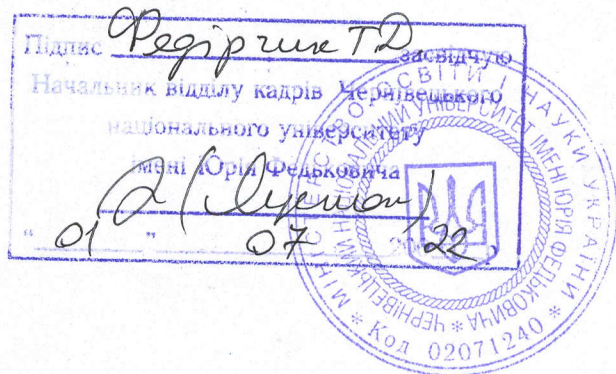 Підпис Федірчик Т.Д. засвідчую
Начальник відділу кадрів Чернівецького
національного університету
імені Юрія Федьковича
"01" 07 2022
МІНІСТЕРСТВО ОСВІТИ І НАУКИ УКРАЇНИ * Код 02071240 *
ЧЕРНІВЕЦЬКИЙ НАЦІОНАЛЬНИЙ УНІВЕРСИТЕТ ІМЕНІ ЮРІЯ ФЕДЬКОВИЧА *